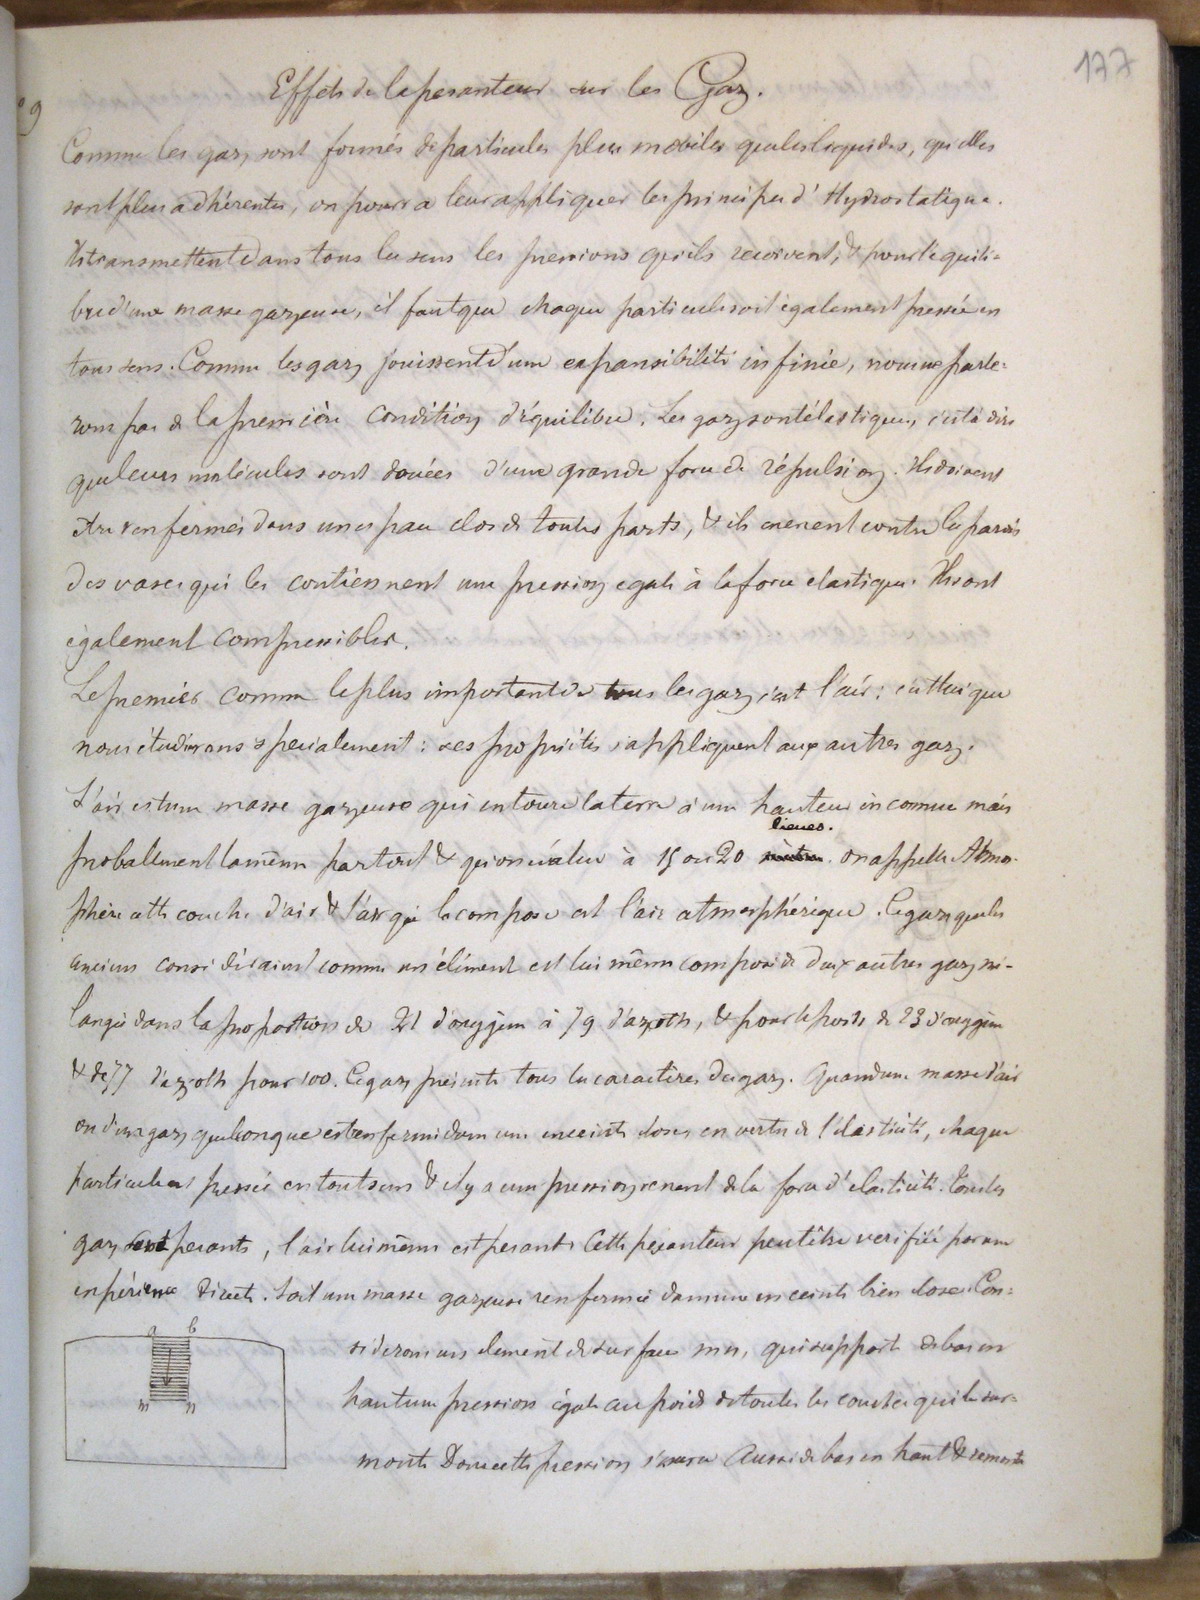 177
9
Effets de la pesanteur sur les Gaz.
Comme les gaz sont formés de particules plus mobiles que les liquides, qu'elles
sont plus adhérentes, on pourra leur appliquer les principes d'Hydrostatique.
Ils transmettent dans tous les sens les pressions qu'ils reçoivent, & pour l'équili-
bre d'une masse gazeuse, il faut que chaque particule soit également pressée en
tous sens. Comme les gaz jouissent d'une expansibilité infinie, nous ne parle-
rons pas de la première condition d'équilibre. Les gaz sont élastiques, c'est à dire
que leurs molécules sont douées d'une grande force de répulsion. Ils doivent
être renfermés dans un espace clos de toutes parts, & ils exercent contre les parois
des vases qui les contiennent une pression égale à la force élastique. Ils sont
également compressibles.
Le premier comme le plus important de tous les gaz c'est l'air; c'est lui que
nous étudierons spécialement: ses propriétés s'appliquent aux autres gaz.
L'air est une masse gazeuse qui entoure la terre à une hauteur inconnue mais
lieues.
probablement la même partout & qu'on évalue à 15 ou 20 . On appelle Atmos-
phère cette couche d'air & l'air qui la compose est l'air atmosphérique. Ce gaz que les
anciens considéraient comme un élément est lui même composé de deux autres gaz mé-
langés dans la proportion de 21 d'oxygène à 79 d'azoth, & pour le poids de 23 d'oxygène
& de 77 d'azoth pour 100. Ce gaz présente tous les caractères des gaz. Quand une masse d'air
ou d'un gaz quelconque est enfermé dans une enceinte close en vertu de l'élasticité, chaque
particule est pressée en tout sens & il y a une pression venant de la force d'élasticité. Tous les
gaz sont pesants, l'air lui même est pesant. Cette pesanteur peut être vérifiée par une
expérience directe. Soit une masse gazeuse renfermée dans une enceinte bien close. Con-
a b
sidérons un élément de surface mn, qui supporte de bas en
m n
haut une pression égale au poids de toutes les couches qui le sur-
monte. Donc cette pression s'exerce aussi de bas en haut &